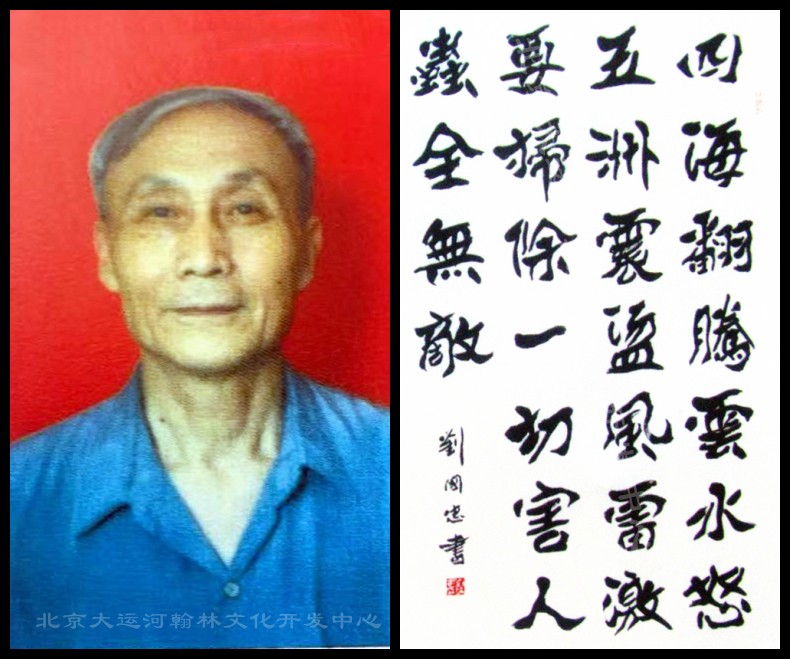 四海翻騰雲水怒
五洲震盪風雷激
要掃除一切害人
蟲全無敵
劉國忠書
北京大运河翰林文化开发中心